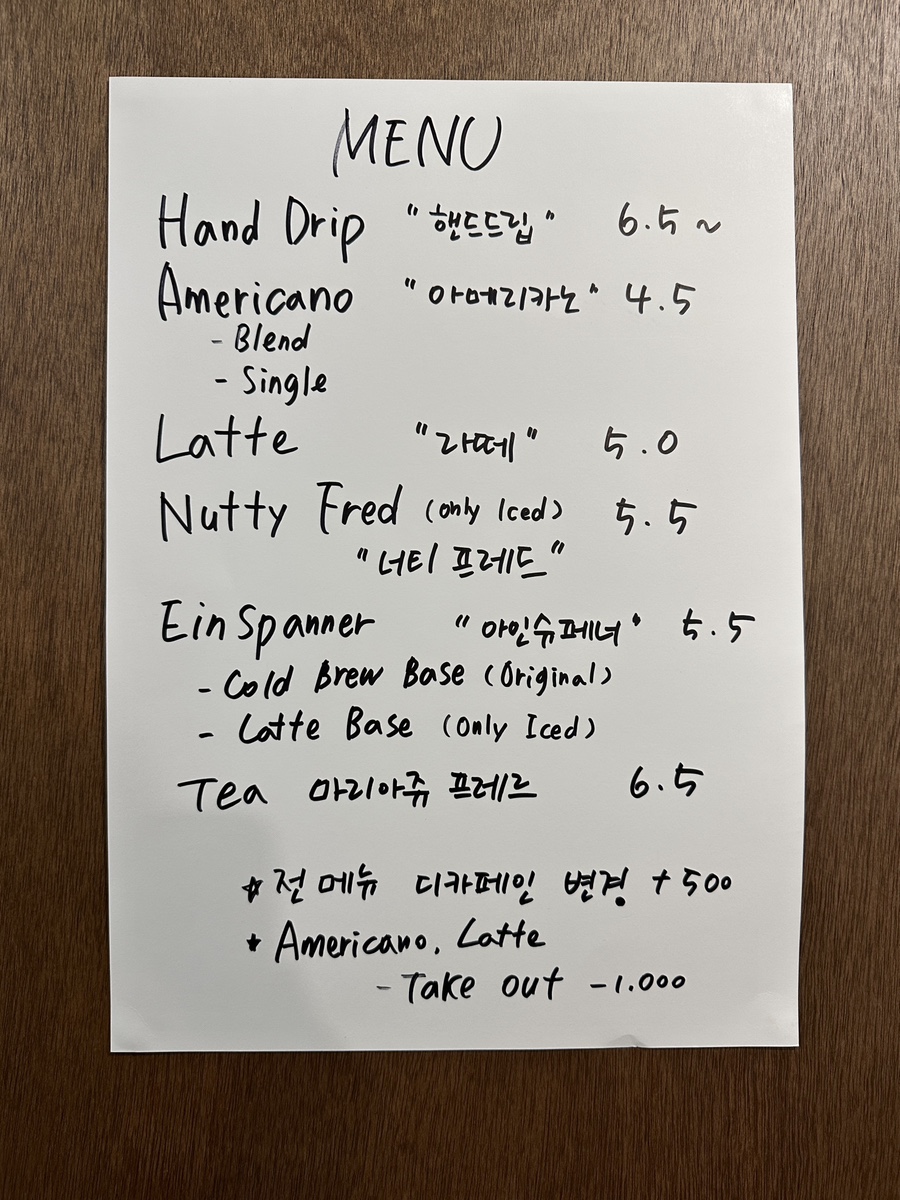 MENU
Hand Drip "핸드드립" 6.5 ~
Americano "아메리카노" 4.5
- Blend
- Single
Latte "라떼" 5.0
Nutty Fred (only Iced) 5.5
"너티 프레드"
Ein Spanner "아인슈페너" 5.5
- Cold Brew Base (Original)
- Latte Base (Only Iced)
Tea 마리아쥬 프레르 6.5
* 전 메뉴 디카페인 변경 +500
* Americano, Latte
- Take out -1.000